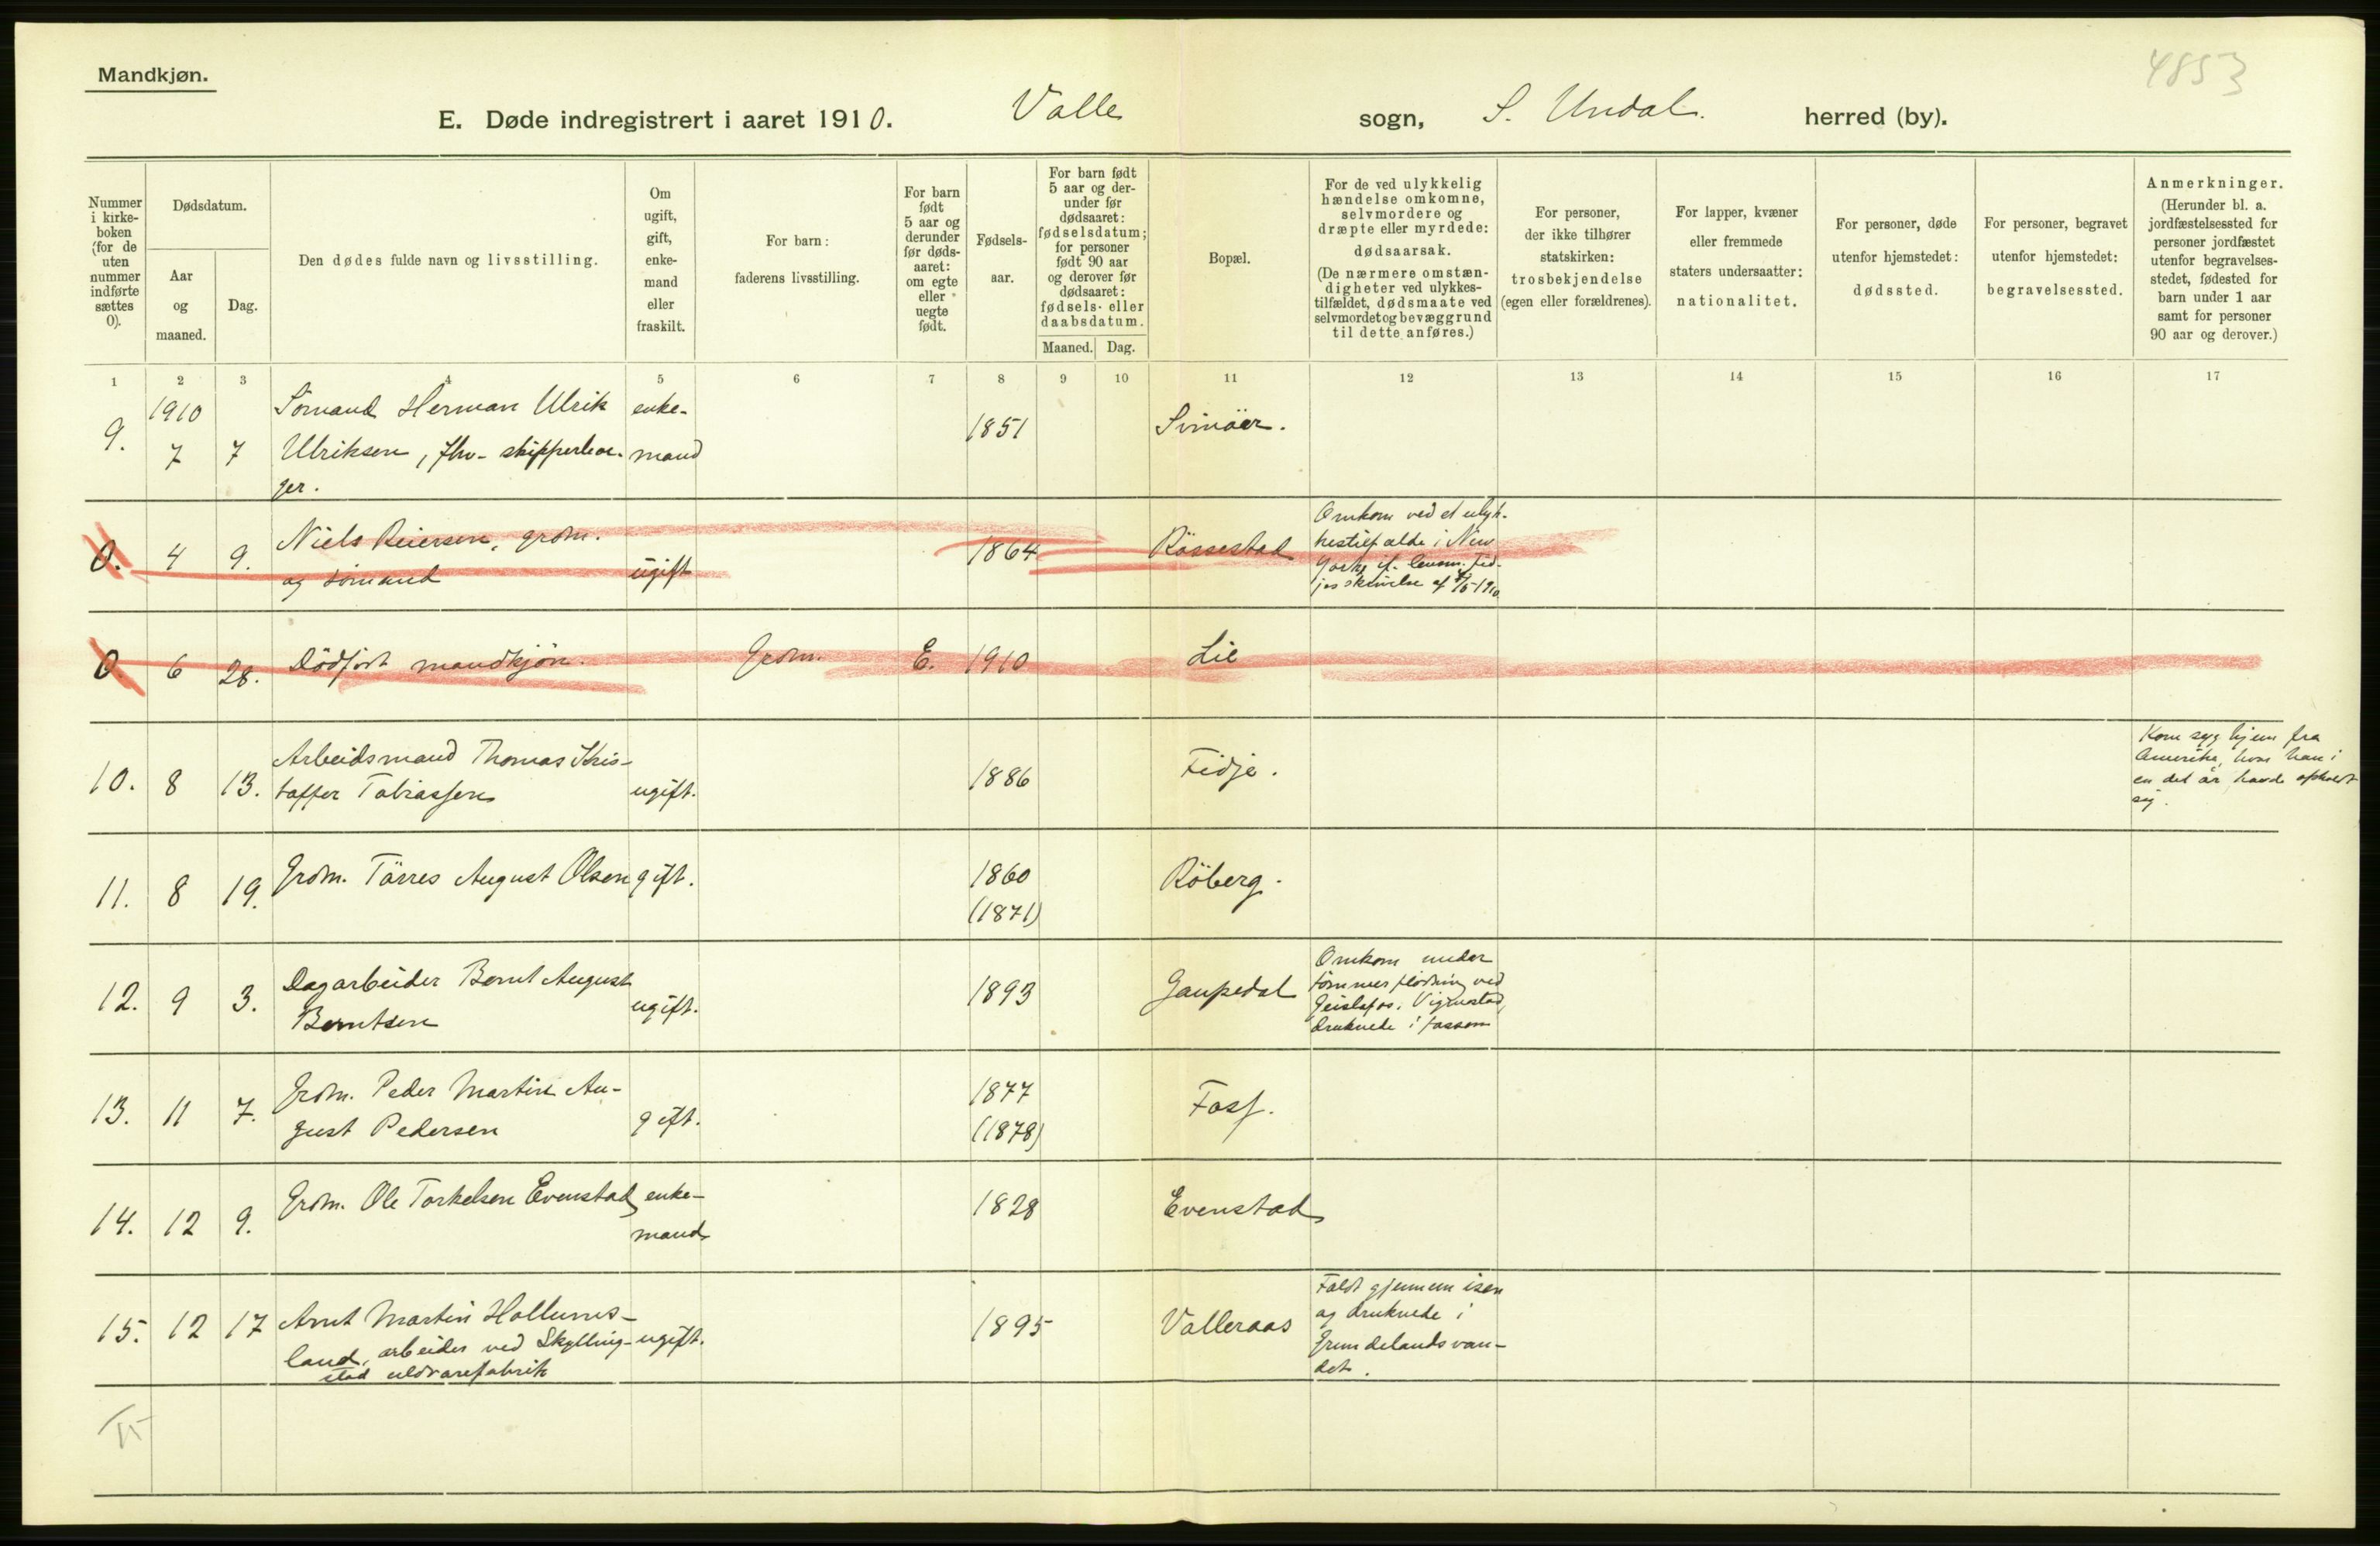 Mandkjøn.
4853
E. Døde indregistrert i aaret 1910. Valle sogn, S. Undal. herred (by).
Nummer i kirke- boken (for de uten nummer indførte sættes 0).
Dødsdatum.
Aar og maaned.
Dag.
Den dødes fulde navn og livsstilling.
Om ugift, gift, enke- mand eller fraskilt.
For barn: faderens livsstilling.
For barn født 5 aar og derunder før døds- aaret: om egte eller uegte født.
Fødsels- aar.
For barn født 5 aar og der- under før dødsaaret: fødselsdatum; for personer født 90 aar og derover før dødsaaret: fødsels- eller daabsdatum.
Maaned. Dag.
Bopæl.
For de ved ulykkelig hændelse omkomne, selvmordere og dræpte eller myrdede: dødsaarsak. (De nærmere omstæn- digheter ved ulykkes- tilfældet, dødsmaate ved selvmordet og bevæggrund til dette anføres.)
For personer, der ikke tilhører statskirken: trosbekjendelse (egen eller forældrenes).
For lapper, kvæner eller fremmede staters undersaatter: nationalitet.
For personer, døde utenfor hjemstedet: dødssted.
For personer, begravet utenfor hjemstedet: begravelsessted.
Anmerkninger. (Herunder bl. a. jordfæstelsessted for personer jordfæstet utenfor begravelses- stedet, fødested for barn under 1 aar samt for personer 90 aar og derover.)
1 2 3 4 5 6 7 8 9 10 11 12 13 14 15 16 17
1910 Sömand Herman Ulrik enke-
9. 7 7 Ulriksen, fhv. skipperbor- mand 1851 Svinöer.
ger.
0. 4 9. Niels Reiersen, grdm. 1864 Rössestad Omkom ved et ulyk-
og sömand ugift kestilfælde i New
York, if. lensm. Fid-
jes skrivelse af
0. 6 28. Dödfödt mandkjön. Grdm. E. 1910 Lie
10. 8 13. Arbeidsmand Thomas Kris- 1886 Fidje. Kom syg hjem fra
toffer Tobiassen ugift. Amerika, hvor han i
en del år havde opholdt
sig.
11. 8 19. Grdm. Törres August Olsen gift. 1860 Röberg.
(1871)
12. 9 3. Dagarbeider Bernt August 1893 Gaupedal Omkom under
Berntsen ugift. tömmerflödning ved
Geislefos i Vigmostad,
druknede i fossen
13. 11 7. Grdm. Peder Martin Au- 1877 Foss.
gust Pedersen gift. (1878)
14. 12 9. Grdm. Ole Torkelsen Evenstad enke- 1828 Evenstad
mand
15. 12 17 Arnt Martin Hollums- 1895 Valleraas Faldt gjennem isen
land, arbeider ved Skylling- ugift. og druknede i
stad uldvarefabrik Grundelandsvan-
det.